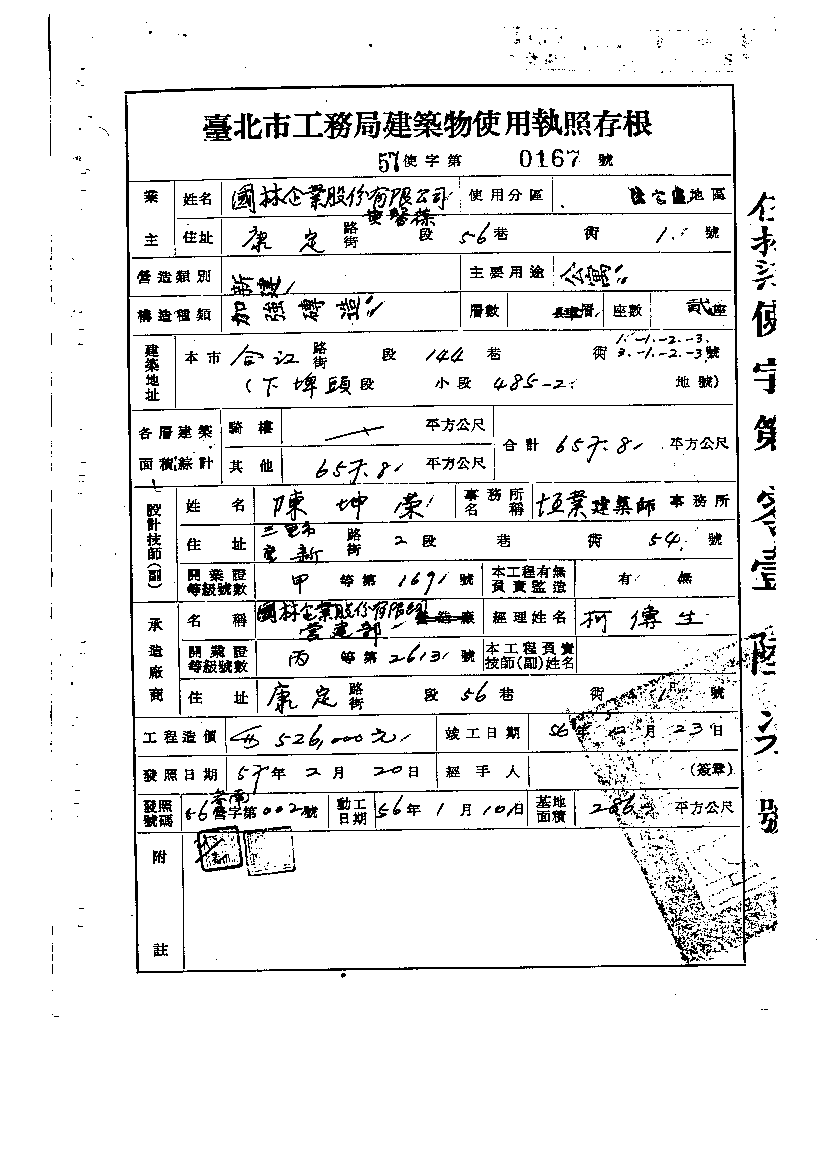 臺北市工務局建築物使用執照存根
57使字第 0167 號
業主 姓名 國林企業股份有限公司 使用分區 地區
住址 康定 路街 段 56巷 衖 1 號
營造類別 新建 主要用途 公寓
構造種類 加強磚造 層數 層 座數 貳座
建築地址 本市 合江 路街 段 144 巷 衖 1.-1.-2.-3. 3.-1.-2.-3號
(下埤頭段 小段 485-2 地號)
各層建築面積綜計 騎樓 平方公尺 合計 657.81 平方公尺
其他 657.81 平方公尺
設計技師(副) 姓名 陳坤榮 事務所名稱 垣業建築師 事務所
住址 三重市 重新 路街 2段 巷 衖 54 號
開業證等級號數 甲 等第 1691 號 本工程有無負責監造 有 無
承造廠商 名稱 國林企業股份有限公司營建部 營造廠 經理姓名 柯傳生
開業證等級號數 丙 等第 2613 號 本工程負責技師(副)姓名
住址 康定 路街 段 56巷 衖 1 號
工程造價 526,000元 竣工日期 56年 月23日
發照日期 57年2月20日 經手人 (簽章)
發照號碼 56 營字第002號 動工日期 56年1月10日 基地面積 286 平方公尺
附註
使字第零壹陸柒號